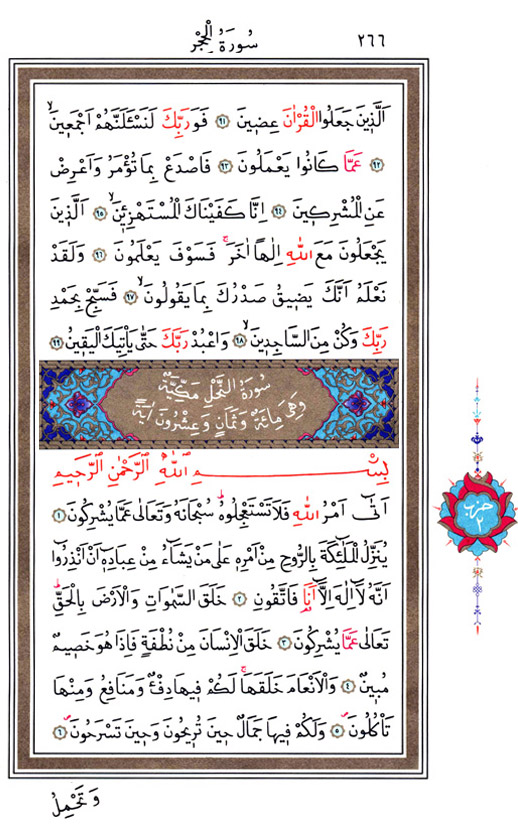 ٢٦٦
سُورَةُ الْحِجْرِ
اَلَّذ۪ينَ جَعَلُوا الْقُرْاٰنَ عِض۪ينَ ﴿٩١﴾ فَوَرَبِّكَ لَنَسْـَٔلَنَّهُمْ اَجْمَع۪ينَۙ
﴿٩٢﴾ عَمَّا كَانُوا يَعْمَلُونَ ﴿٩٣﴾ فَاصْدَعْ بِمَا تُؤْمَرُ وَاَعْرِضْ
عَنِ الْمُشْرِك۪ينَ ﴿٩٤﴾ اِنَّا كَفَيْنَاكَ الْمُسْتَهْزِء۪ينَۙ ﴿٩٥﴾ اَلَّذ۪ينَ
يَجْعَلُونَ مَعَ اللّٰهِ اِلٰهًا اٰخَرَۚ فَسَوْفَ يَعْلَمُونَ ﴿٩٦﴾ وَلَقَدْ
نَعْلَمُ اَنَّكَ يَض۪يقُ صَدْرُكَ بِمَا يَقُولُونَۙ ﴿٩٧﴾ فَسَبِّحْ بِحَمْدِ
رَبِّكَ وَكُنْ مِنَ السَّاجِد۪ينَۙ ﴿٩٨﴾ وَاعْبُدْ رَبَّكَ حَتّٰى يَأْتِيَكَ الْيَق۪ينُ ﴿٩٩﴾
سُورَةُ النَّحْلِ مَكِّيَّةٌ
وَهِيَ مِائَةٌ وَثَمَانٍ وَعِشْرُونَ اٰيَةً
بِسْمِ اللّٰهِ الرَّحْمٰنِ الرَّح۪يمِ
اَتٰٓى اَمْرُ اللّٰهِ فَلَا تَسْتَعْجِلُوهُۜ سُبْحَانَهُ وَتَعَالٰى عَمَّا يُشْرِكُونَ ﴿١﴾
يُنَزِّلُ الْمَلٰٓئِكَةَ بِالرُّوحِ مِنْ اَمْرِه۪ عَلٰى مَنْ يَشَٓاءُ مِنْ عِبَادِه۪ٓ اَنْ اَنْذِرُٓوا
اَنَّهُ لَٓا اِلٰهَ اِلَّٓا اَنَا۬ فَاتَّقُونِ ﴿٢﴾ خَلَقَ السَّمٰوَاتِ وَالْاَرْضَ بِالْحَقِّۜ
تَعَالٰى عَمَّا يُشْرِكُونَ ﴿٣﴾ خَلَقَ الْاِنْسَانَ مِنْ نُطْفَةٍ فَاِذَا هُوَ خَص۪يمٌ
مُب۪ينٌ ﴿٤﴾ وَالْاَنْعَامَ خَلَقَهَاۚ لَكُمْ ف۪يهَا دِفْءٌ وَمَنَافِعُ وَمِنْهَا
تَأْكُلُونَۖ ﴿٥﴾ وَلَكُمْ ف۪يهَا جَمَالٌ ح۪ينَ تُر۪يحُونَ وَح۪ينَ تَسْرَحُونَۖ ﴿٦﴾
حزب
٢
وَتَحْمِلُ